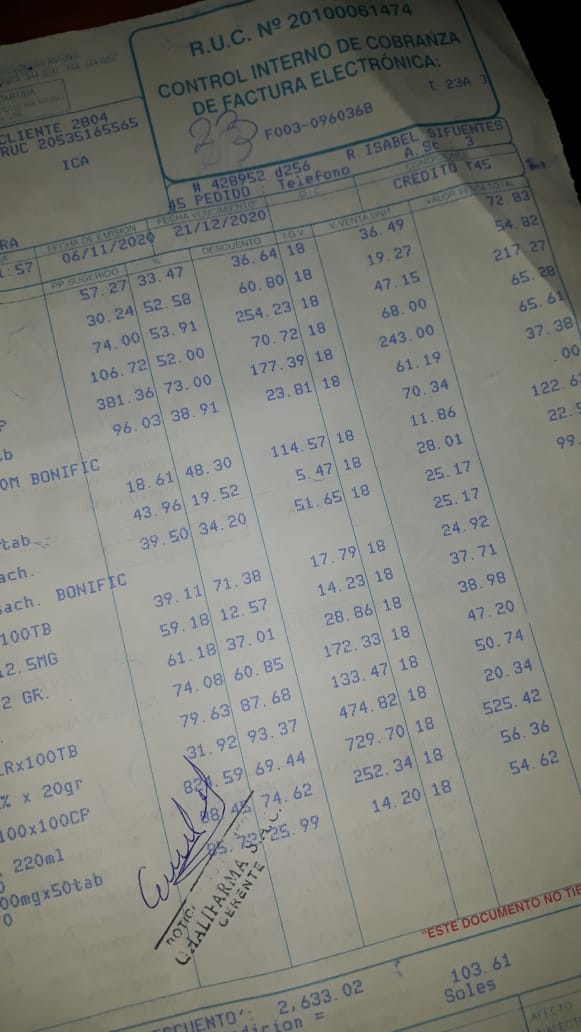 R.U.C. Nº 20100061474
CONTROL INTERNO DE COBRANZA
DE FACTURA ELECTRÓNICA:
[ 23A ]
233 F003-0960368
CLIENTE 2804
RUC 20535165565
ICA
# 428952 d256 R.ISABEL SIFUENTES
#5 PEDIDO : Telefono A.Sc: 3
CONDICIONES
CREDITO T45
FECHA DE EMISION FECHA VENCIMIENTO
1:57 06/11/2020 21/12/2020
PP SUGERIDO % DESCUENTO I.G.V. V.VENTA UNIT VALOR VENTA TOTAL
57.27 33.47 36.64 18 36.49 72.83
30.24 52.58 60.80 18 19.27 54.82
74.00 53.91 254.23 18 47.15 217.27
106.72 52.00 70.72 18 68.00 65.28
381.36 73.00 177.39 18 243.00 65.61
96.03 38.91 23.81 18 61.19 37.38
OM BONIFIC 70.34 .00
18.61 48.30 114.57 18 11.86 122.6
tab 43.96 19.52 5.47 18 28.01 22.5
ach. 39.50 34.20 51.65 18 25.17 99.
ach. BONIFIC 25.17
100TB 39.11 71.38 17.79 18 24.92
2.5MG 59.18 12.57 14.23 18 37.71
2 GR. 61.18 37.01 28.86 18 38.98
74.08 60.85 172.33 18 47.20
Rx100TB 79.63 87.68 133.47 18 50.74
% x 20gr 31.92 93.37 474.82 18 20.34
100x100CP 824.59 69.44 729.70 18 525.42
220ml 88.45 74.62 252.34 18 56.36
00mgx50tab 25.99 14.20 18 54.62
0
QUALIFARMA S.A.C.
GERENTE
"ESTE DOCUMENTO NO TIE
SCUENTO : 2,633.02 103.61
dicion = Soles
AFECTO